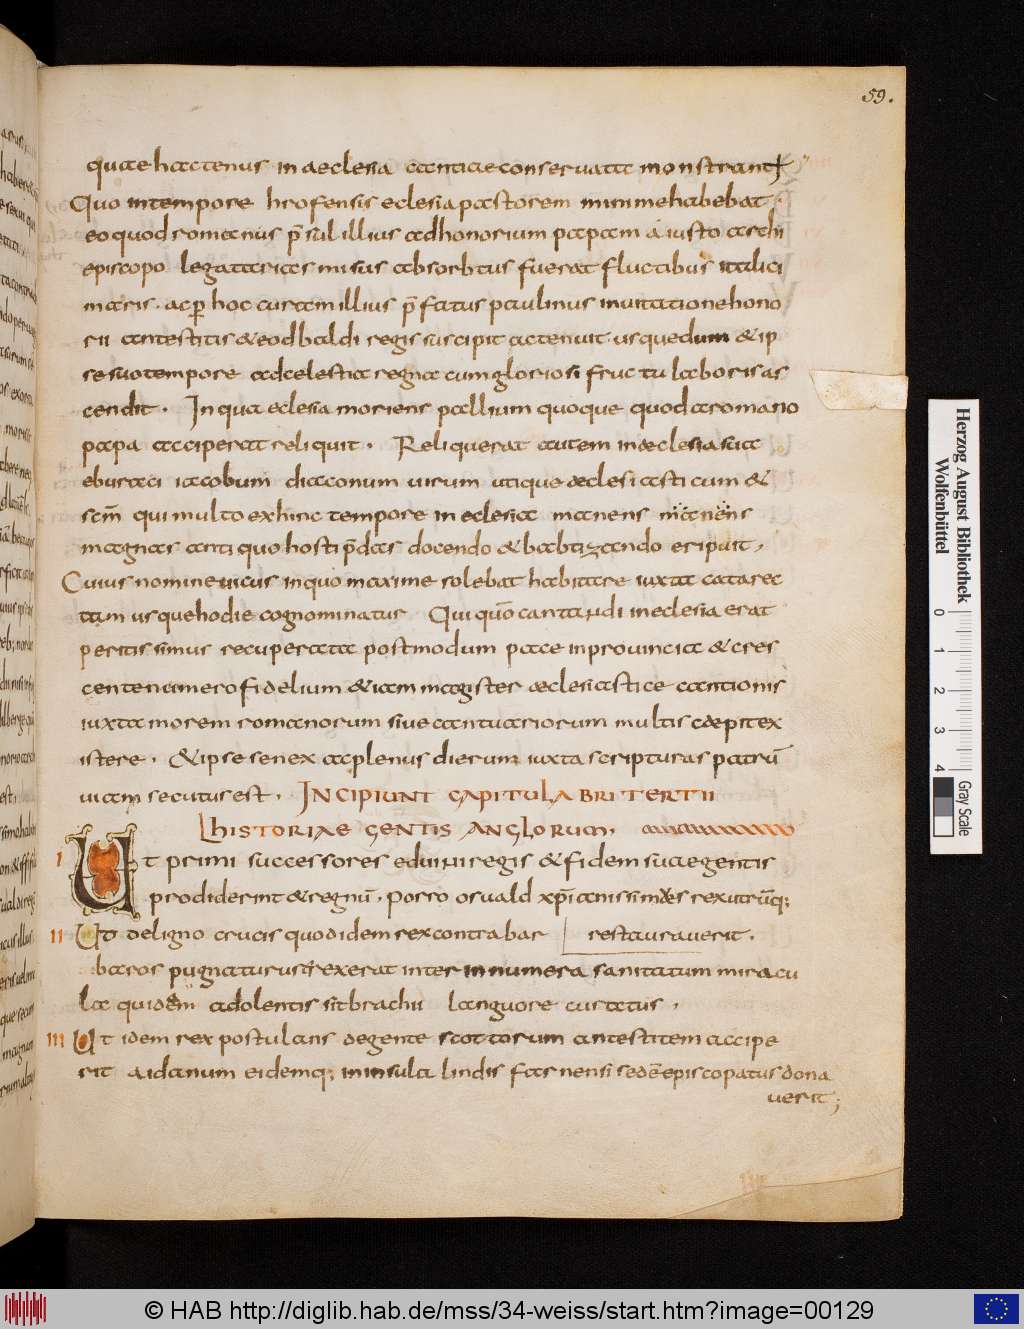 59.
quae hactenus in aeclesia cantiae conseruata monstrant᷒
Quo intempore hrofensis eclesia pastorem minime habebat.
eo quod romanus p̄sul illius ad honorium papam a iusto archi
episcopo legatarius misus absorbtus fuerat fluctibus italici
maris. ac ꝑ hoc curam illius p̄fatus paulinus inuitatione hono
rii antestitis & eodbaldi regis suscipit ac tenuit. usque dum & ip
se suo tempore ad celestia regna cum gloriosi fructu laboris as
cendit. In qua eclesia moriens pallium quoque quod a romano
papa acciperat reliquit. Reliquerat autem in aeclesia sua
eburaci iacobum diaconum uirum utique aeclesiasticum &
scm̄ qui multo ex hinc tempore in eclesia manens manens
magnas antiquo hosti p̄das docendo & babtizando eripuit,
Cuius nomine uicus in quo maxime solebat habitare iuxta catarec
tam usque hodie cognominatur Qui quō cantandi in eclesia erat
peritissimus recuperata postmodum pace in prouincia & cres
cente numero fidelium & iam magister aeclesiasticae cantionis
iuxta morem romanorum siue cantuariorum multis caepit ex
istere. & ipse senex ac plenus dierum iuxta scripturas patrū
uiam secutus est. INCIPIUNT CAPITULA BRI TERTII
HISTORIAE GENTIS ANGLORUM.
I Ut primi successores eduini regis & fidem suae gentis
prodiderint & regnū. porro osuald xp̄ianissimus rex utrūq;
II Ut de ligno crucis quod idem rex contra bar restaurauerit.
baros pugnaturus erexerat inter innumera sanitatum miracu
la quidem adolentis sit brachii languore curatus.
III Ut idem rex postulans de gente scottorum antestitem accipe
rit aidanum eidemq; in insula lindisfarnensi sedē episcopatus dona
uerit;
Herzog August Bibliothek
Wolfenbüttel
0 1 2 3 4
Gray Scale
© HAB http://diglib.hab.de/mss/34-weiss/start.htm?image=00129